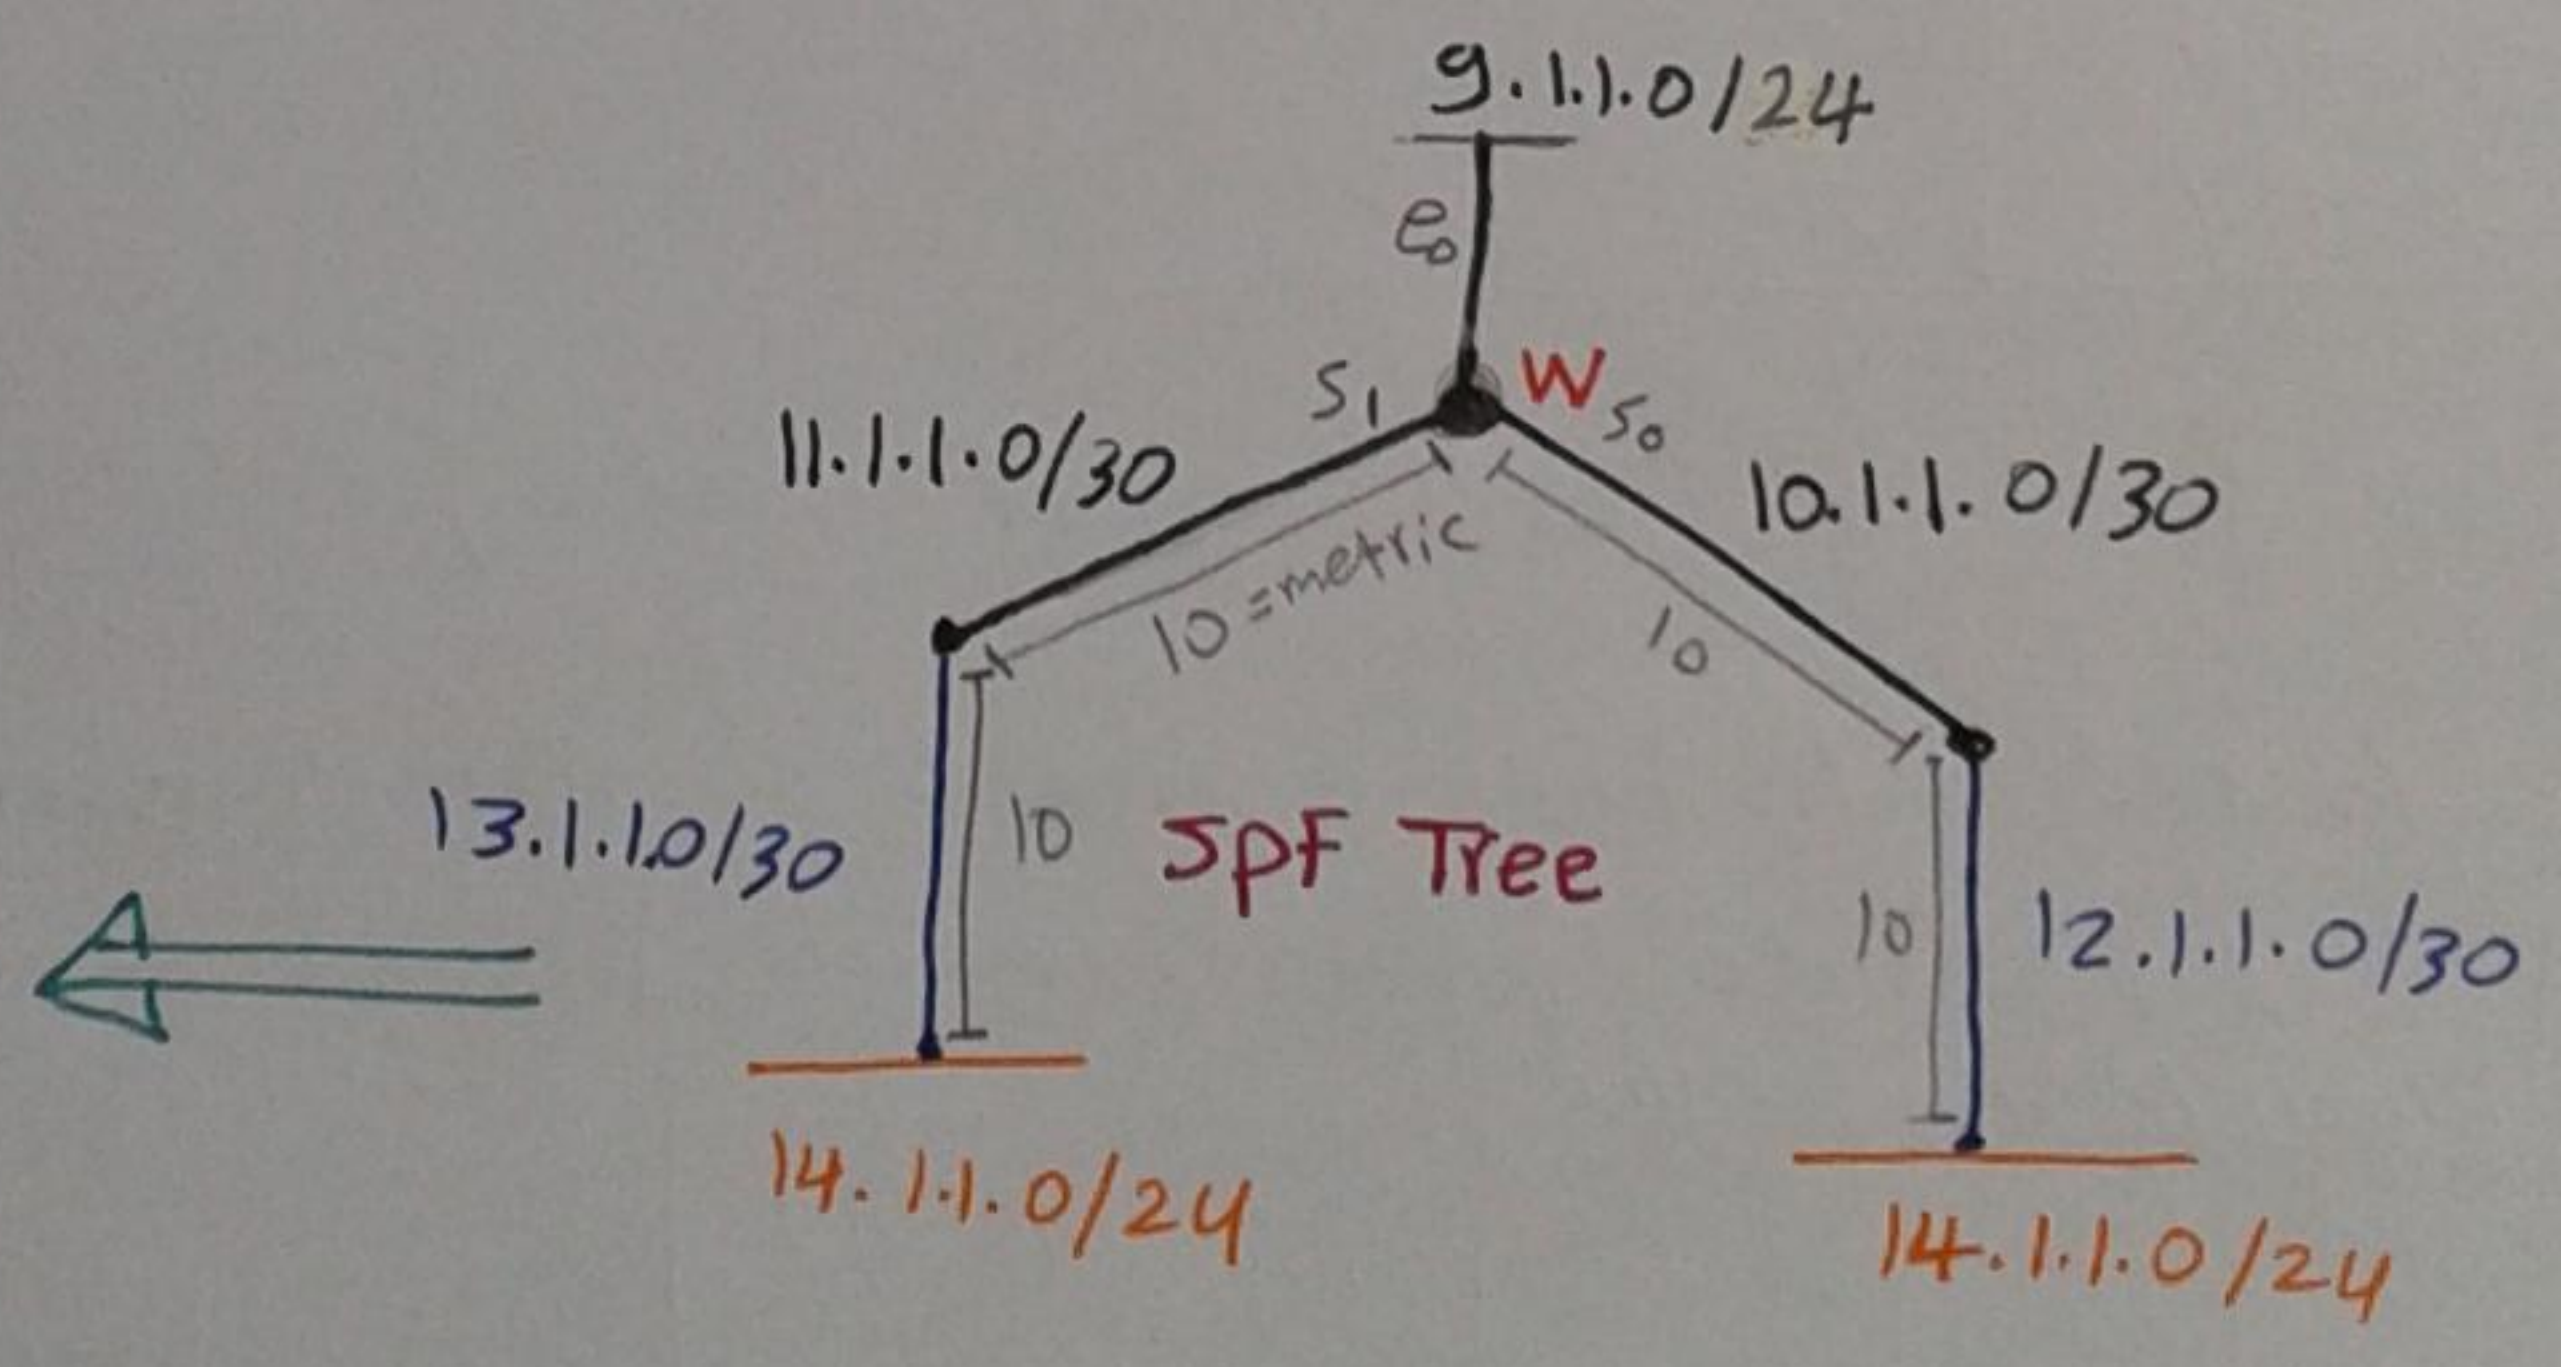 9.1.1.0/24
e0
S1
W
S0
11.1.1.0/30
10.1.1.0/30
10=metric
10
13.1.1.0/30
10
SPF Tree
10
12.1.1.0/30
14.1.1.0/24
14.1.1.0/24